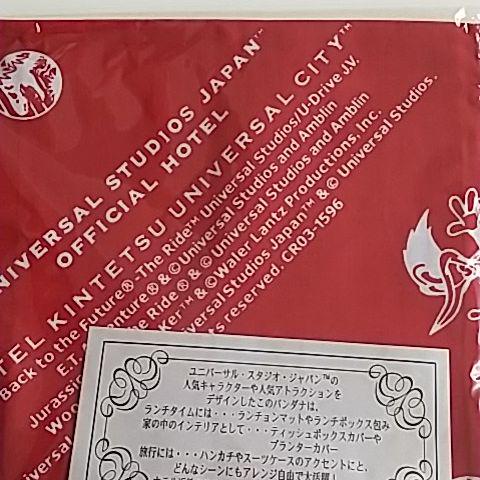 UNIVERSAL STUDIOS JAPAN™
OFFICIAL HOTEL
HOTEL KINTETSU UNIVERSAL CITY™
Back to the Future® The Ride™ Universal Studios/U-Drive J.V.
E.T. Adventure®&© Universal Studios and Amblin
Jurassic The Ride ® & © Universal Studios and Amblin
™&©Waler Lantz Productions, Inc.
Universal Studios Japan™ & © Universal Studios.
reserved. CR03-1596
ユニバーサル・スタジオ・ジャパン™の
人気キャラクターや人気アトラクションを
デザインしたこのバンダナは、
ランチタイムには・・・ランチョンマットやランチボックス包み
家の中のインテリアとして・・・ティッシュボックスカバーや
プランターカバー
旅行には・・・ハンカチやスーツケースのアクセントにと、
どんなシーンにもアレンジ自由で大活躍!